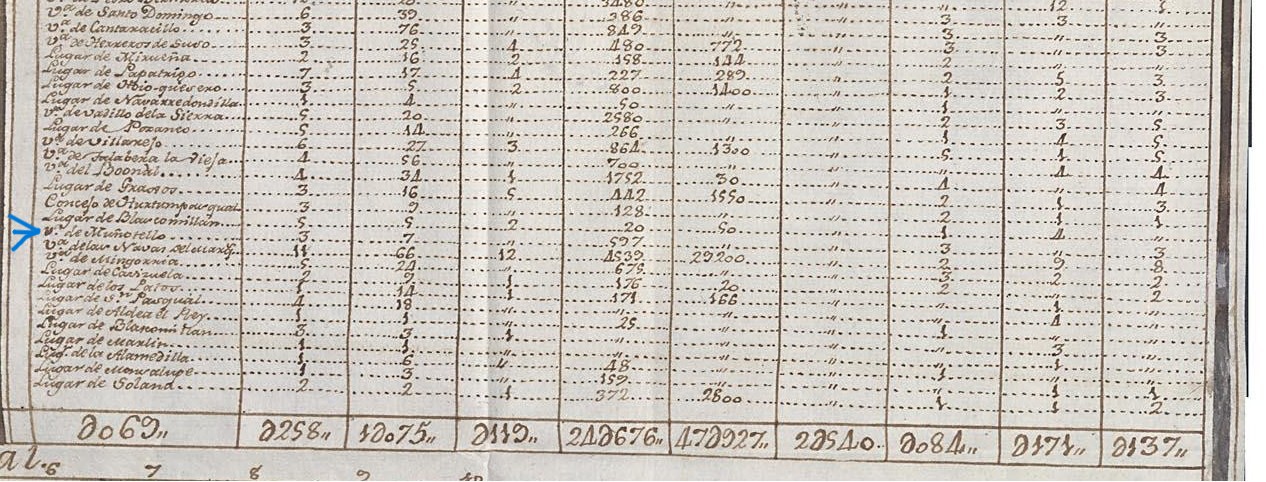 V.ª de Santo Domingo 6 39 ,, 386 ,, ,, 3 3 ,,
V.ª de Cantaracillo 3 76 ,, 849 ,, ,, 3 ,, 3
V.ª de Herreros de Suso 3 25 4 480 772 ,, 3 ,, 3
Lugar de Mirueña 2 16 2 158 144 ,, 2 ,, ,,
Lugar de Papatrigo 7 17 4 227 289 ,, 2 5 3
Lugar de Hoio-quesero 3 5 2 800 1400 ,, 1 2 3
Lugar de Navarredondilla 1 4 ,, 50 ,, ,, ,, ,, ,,
V.ª de Vadillo dela Sierra 5 20 ,, 2580 ,, ,, 2 3 5
Lugar de Pozanco 5 14 ,, 266 ,, ,, 1 4 5
V.ª de Villarejo 6 27 3 864 1300 ,, 5 1 5
V.ª de Talabera la Vieja 4 56 ,, 700 ,, ,, ,, 1 4
V.ª del 4 34 1 1752 30 ,, 4 ,, 4
Lugar de Grajos 3 16 5 442 1550 ,, 2 1 3
Concejo de 3 9 ,, 128 ,, ,, 2 1 1
Lugar de Blascomillan 5 5 2 20 50 ,, 1 4 ,,
V.ª de Muñotello 3 7 ,, 597 ,, ,, ,, 3
V.ª delas Navas del Marq.s 11 66 12 4539 29200 ,, 2 9 8
V.ª de Mingorria 5 24 ,, 675 ,, ,, 3 2 2
Lugar de 2 9 1 176 20 ,, 2 ,, 2
Lugar de los Patos 1 14 1 171 166 ,, ,, 1 ,,
Lugar de S.n Pasqual 4 18 ,, ,, ,, ,, ,, 4 ,,
Lugar de Aldea el Rey 1 1 ,, 25 ,,
Lugar de 3 3 1 ,, ,,
Lugar de Marlin 1 1 ,, ,, ,, ,, ,, 3 ,,
Lug.r de la Alamedilla 1 6 48 ,,
Lugar de Monsalupe 1 3 ,, 159 ,,
Lugar de 2 2 1 372 2800 ,, 1 1 2
∂069,, ∂258,, 1∂075,, ∂119,, 24∂676,, 47∂927,, 2∂540 ∂084,, ∂171,, ∂137,,
al. 6 7 8 9 10